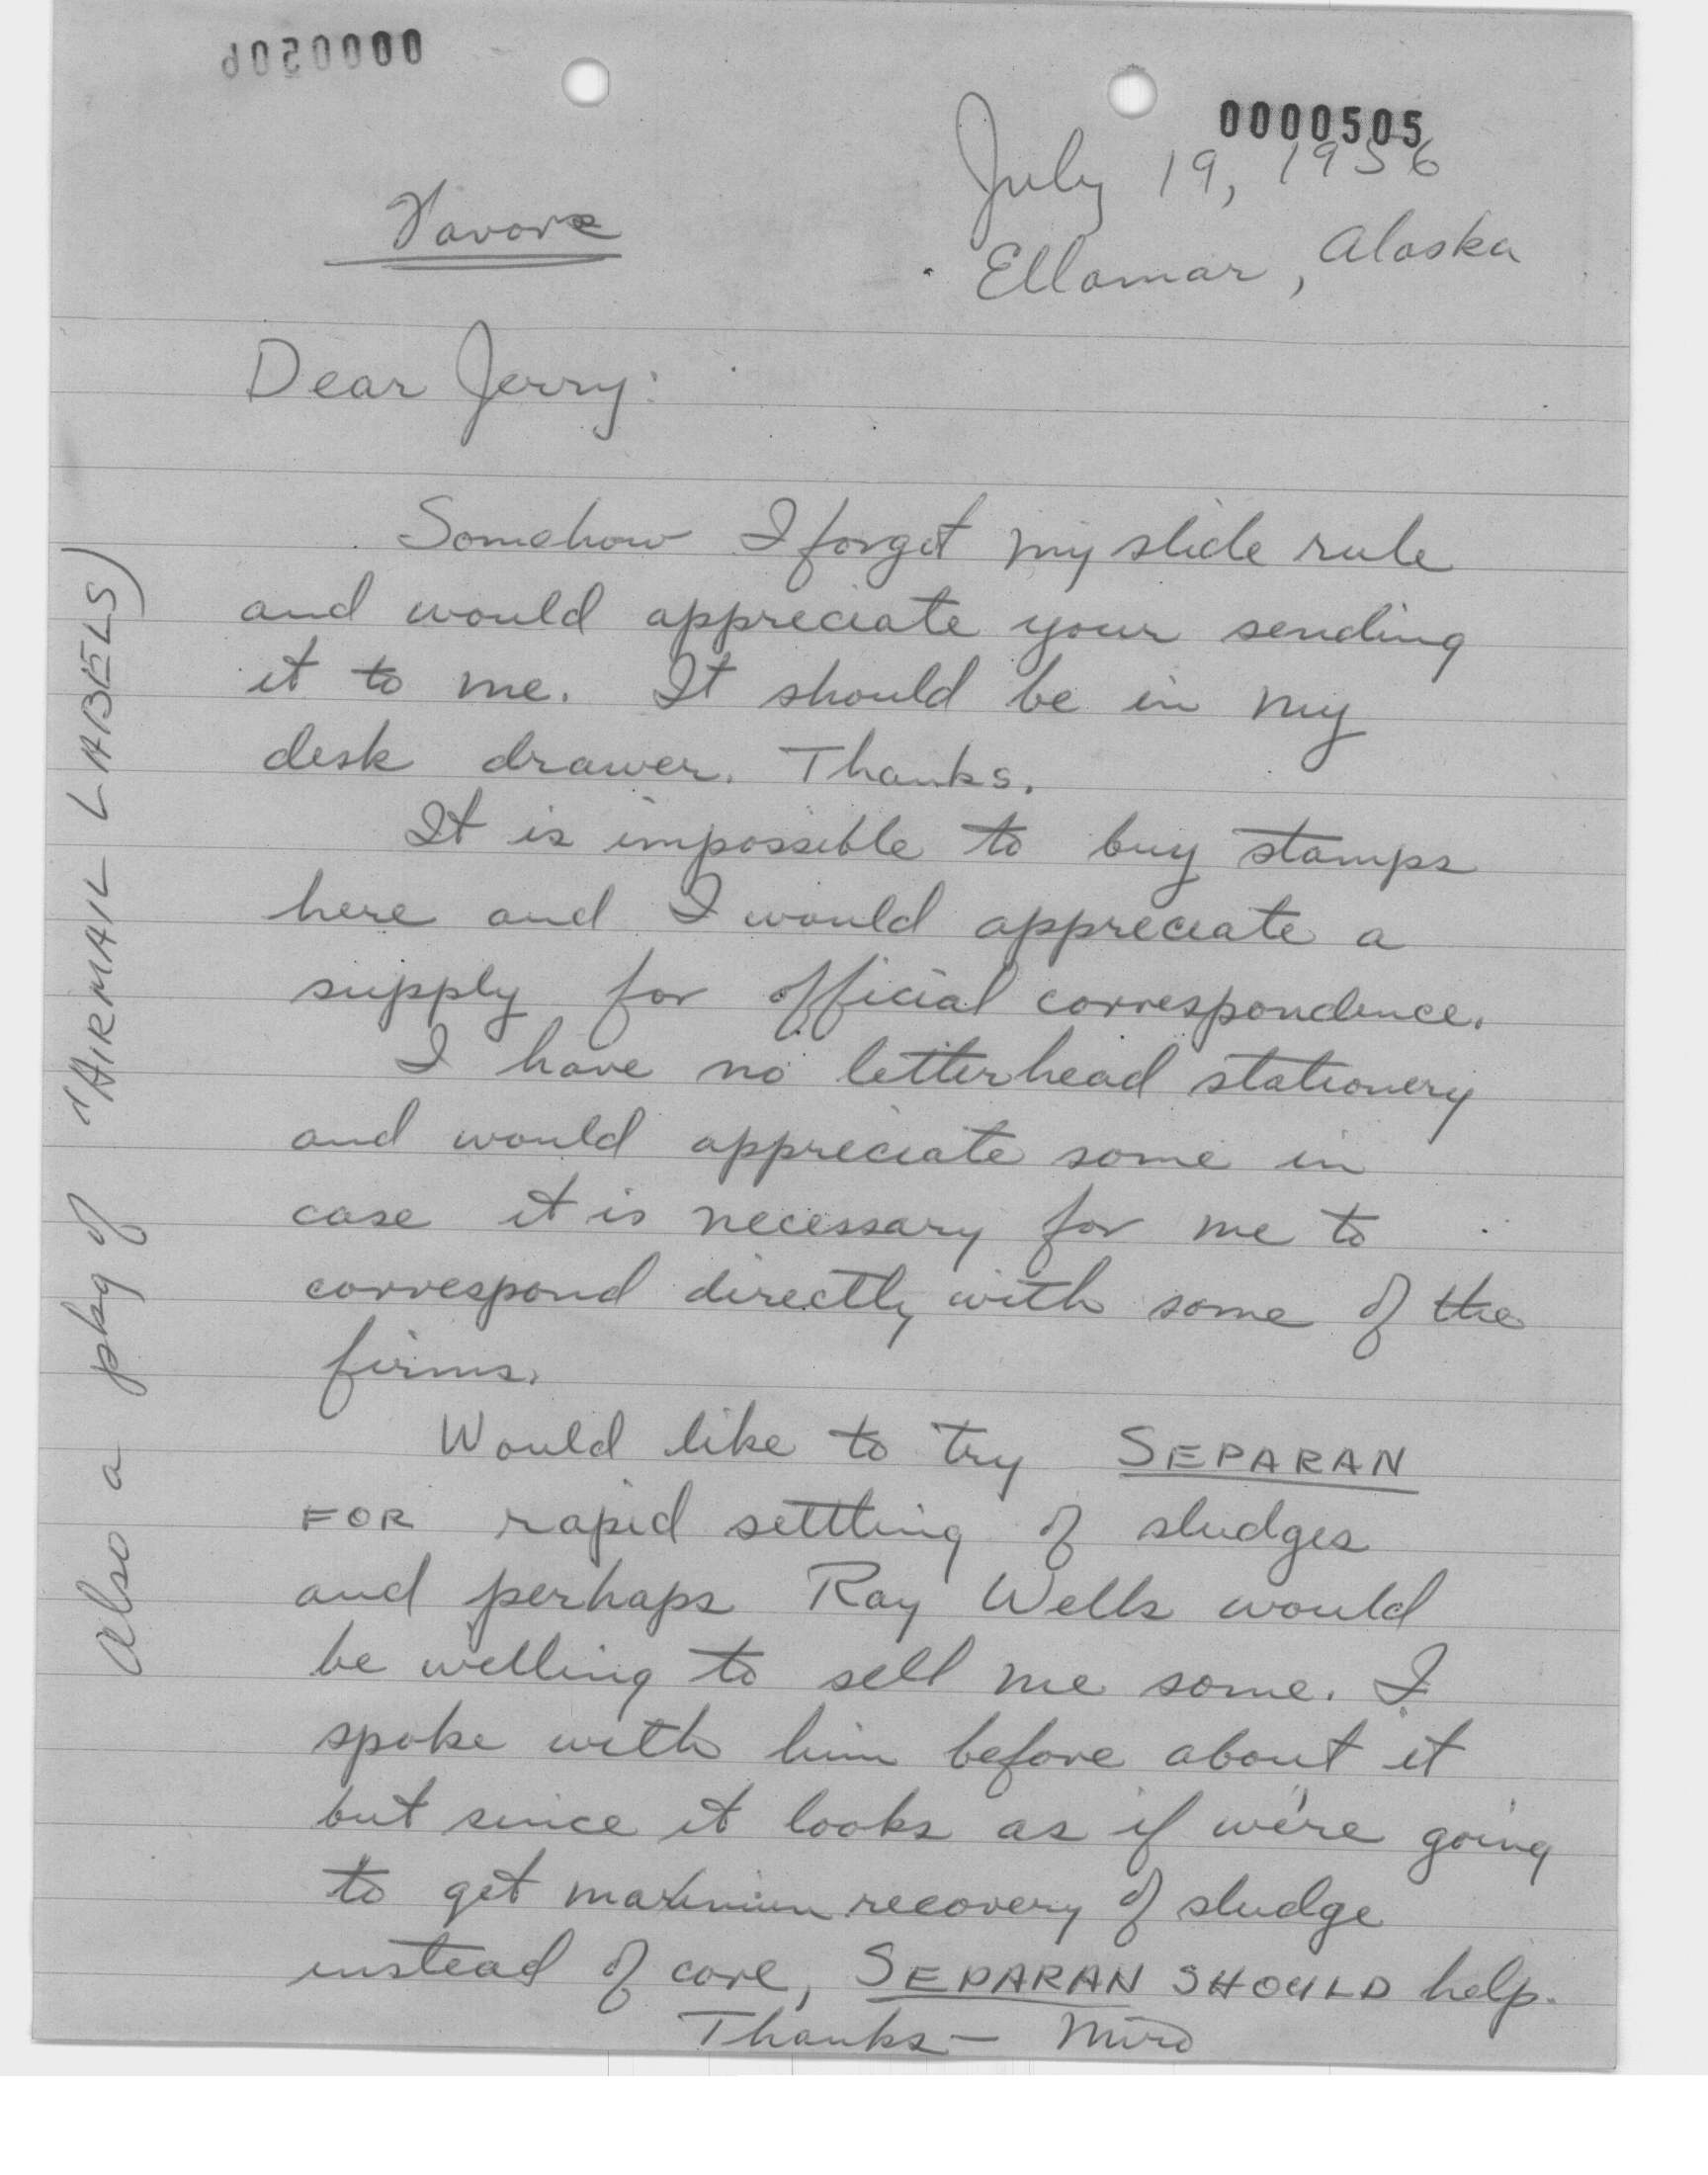 0000505
July 19, 1956
Ellamar, Alaska
Dear Jerry:
Somehow I forgot my slide rule
and would appreciate your sending
it to me. It should be in my
desk drawer. Thanks.
It is impossible to buy stamps
here and I would appreciate a
supply for official correspondence.
I have no letterhead stationery
and would appreciate some in
case it is necessary for me to
correspond directly with some of the
firms.
Would like to try SEPARAN
FOR rapid settling of sludges
and perhaps Ray Wells would
be willing to sell me some. I
spoke with him before about it
but since it looks as if we're going
to get maximum recovery of sludge
instead of core, SEPARAN SHOULD help.
Thanks — Miro
Also a pkg of "AIRMAIL LABELS)